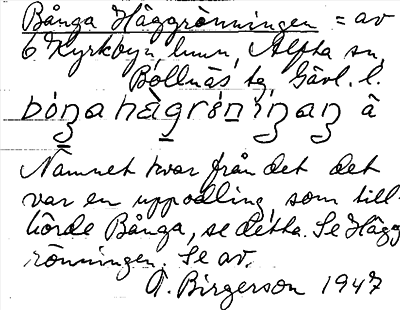 Bånga Häggrönningen = av
6 Kyrkbyn, hmn, Alfta sn,
Bollnäs tg, Gävl. l.
bóŋa hägróniŋaŋ â
Namnet kvar från det det
var en uppodling, som till-
hörde Bånga, se detta. Se Hägg
rönningen. Se av.
A. Birgerson 1947